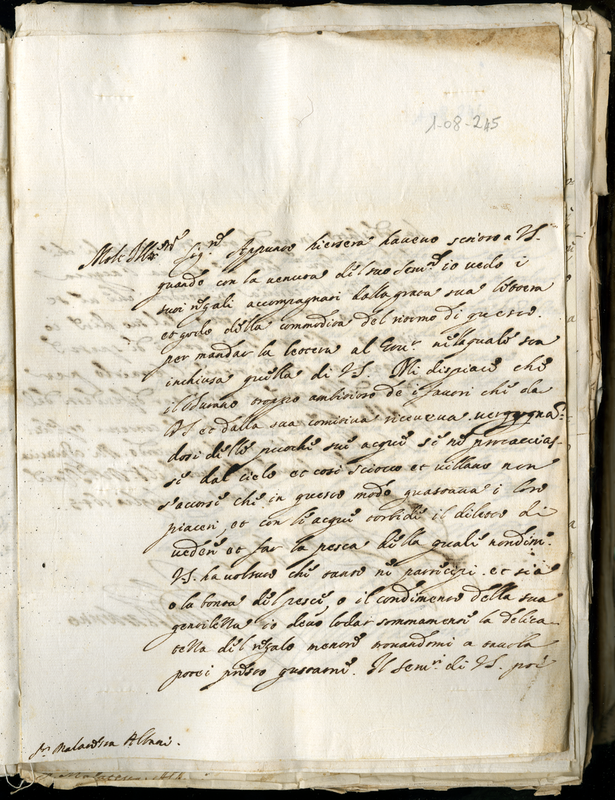 1-08-245
Molt' Ill.re Sig.r Appunto hiersera havevo scritto a V.S.
quando con la venuta del suo Ser.re io vedo i
suoi regali accompagnati dalla grata sua lettera
et godo della commodita del ritorno di questo
per mandar la lettera al nella quale sta
inchiusa quella di V.S. Mi dispiace che
il troppo ambitioso de i favori che da
VS et dalla sua comitiva riceveva vergogna-
dosi delle puoche sue acque se ne procaccias-
se dal cielo et cosi sciocco et villano non
s'accorse che in questo modo guastava i loro
piaceri, et con le acque torbide il diletto di
veder et far la pesca della quale nondim.
V.S. ha voluto che tanto ne partecipi. et sia
o la bonta del pesce o il condimento della sua
gentilezza io devo lodar sommamente la delica-
tezza del regalo mentre trovandomi a tavola
potei presto gustarne. Il Ser.re di V.S. poi
S.r Malatesta Albani.